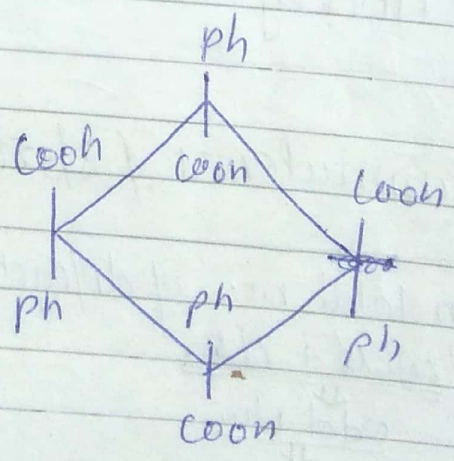 ph
Cooh
Cooh
Cooh
ph
ph
ph
Cooh